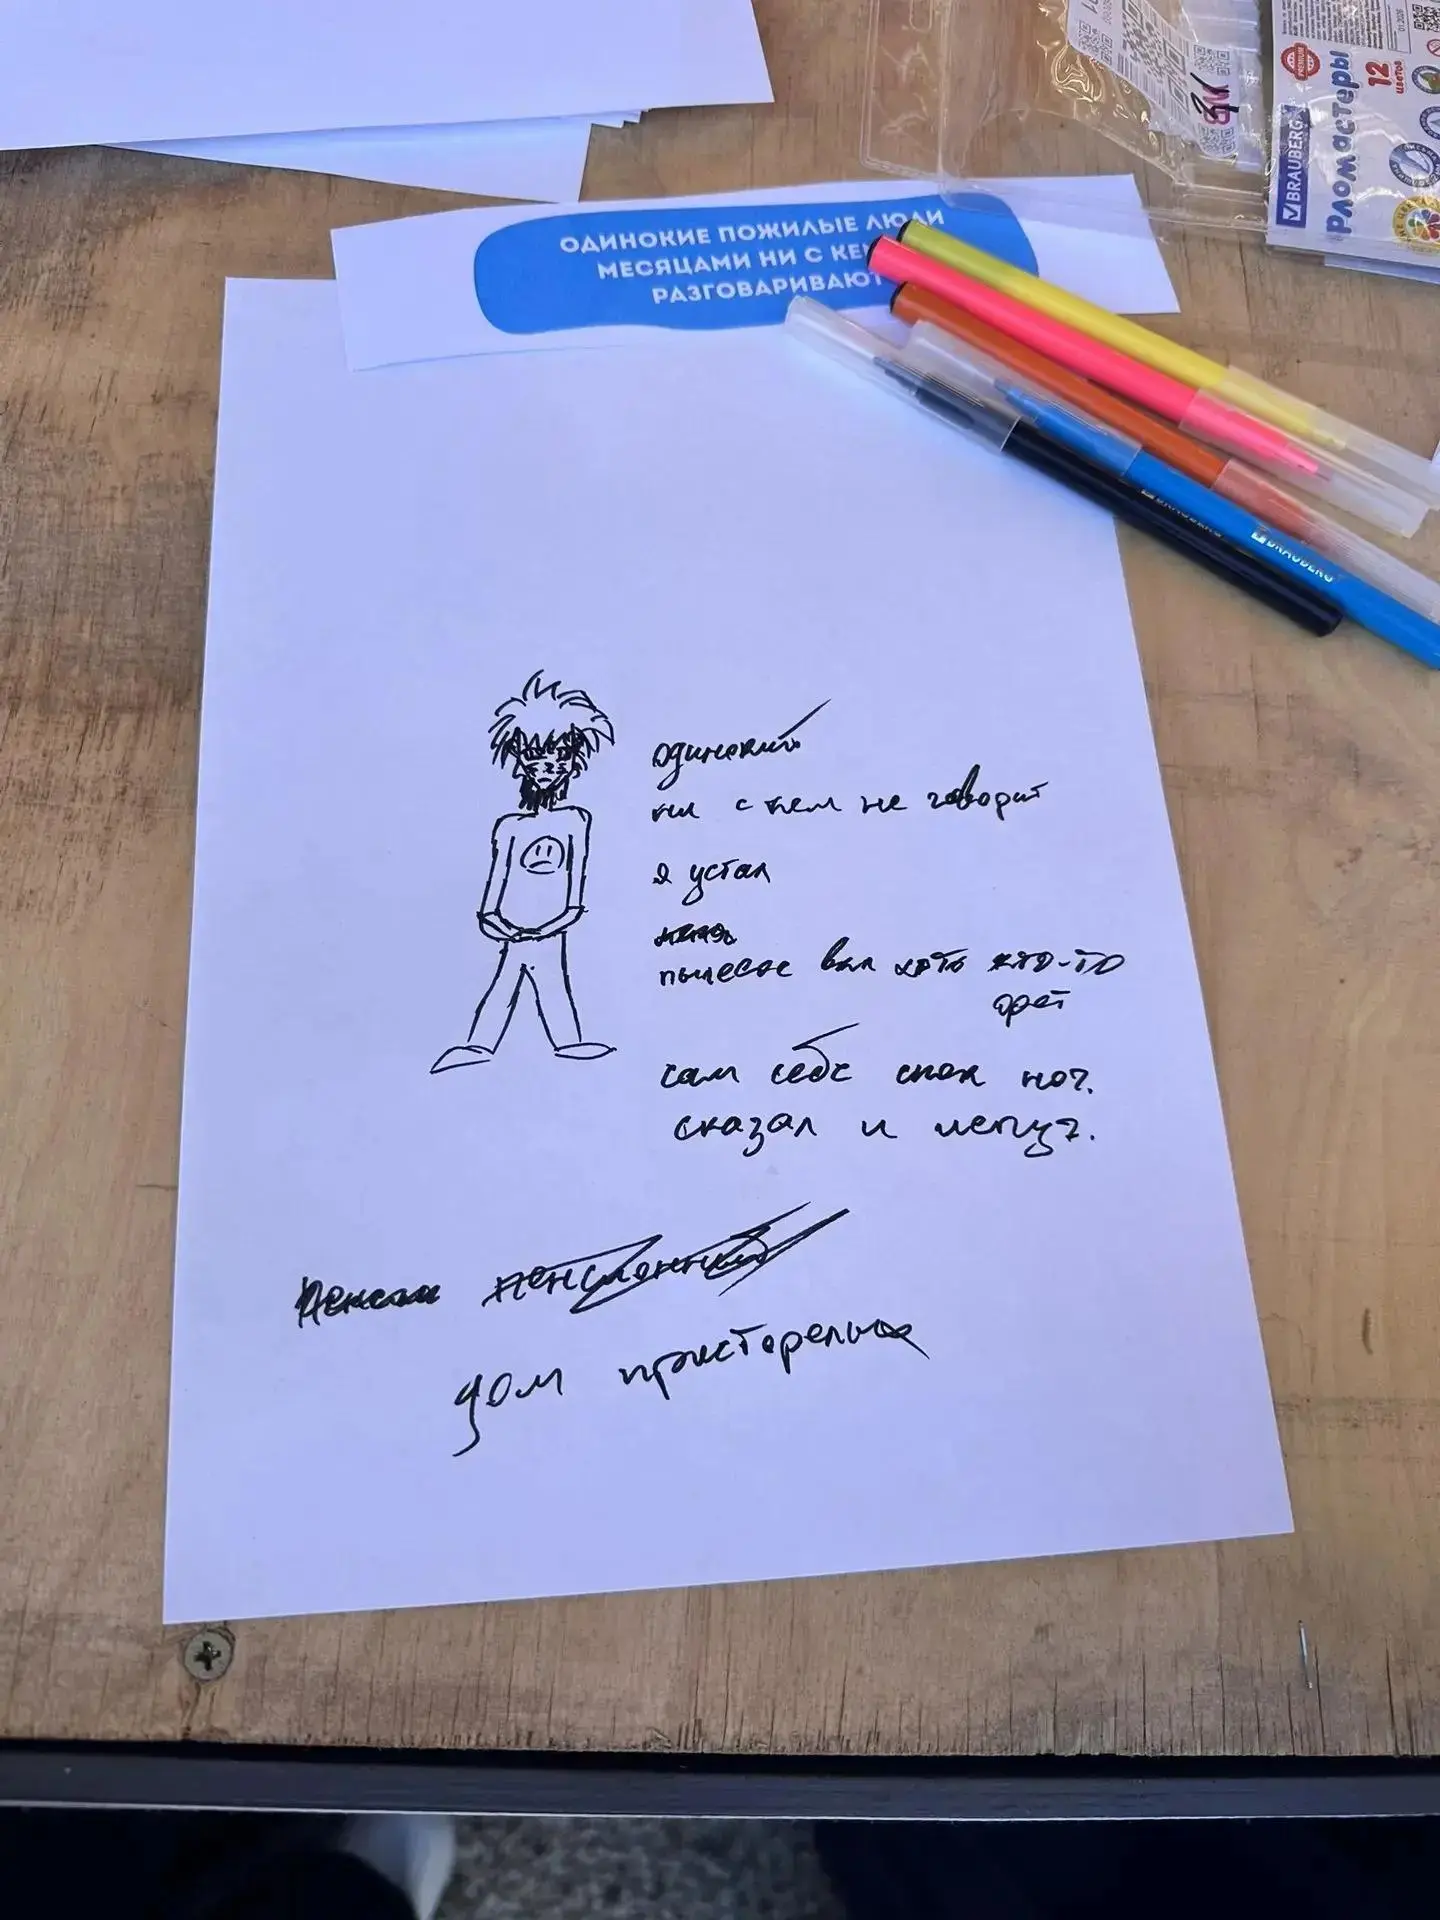 ОДИНОКИЕ ПОЖИЛЫЕ ЛЮДИ
МЕСЯЦАМИ НИ С КЕМ
РАЗГОВАРИВАЮТ
BRAUBERG
Фломастеры
12
цветов
PREMIUM
01.2026
BRAUBERG
одинокий
ни с кем не говорит
я устал
пылесос вкл хоть кто-то
орет
сам себе спок ноч.
сказал и испуг.
дом присторелых